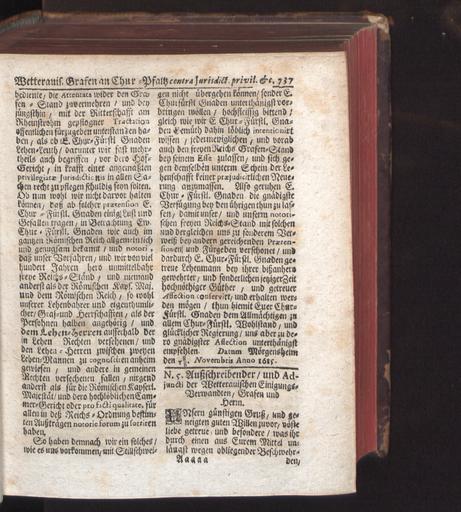 Wetterauis. Grafen an Chur-Pfaltz contra Jurisdict. privil. &c. 737
bediente, die Attentata wider den Gra-
fen-Stand zuvermehren / und bey
jüngsthin / mit der Ritterschafft am
Rheinstrohm gepflogner Tractation
öffentlichen fürzugeben unterstanden ha-
ben / als ob E. Chur-Fürstl. Gnaden
Lehen-Leuth / darunter wir fast mehr-
theils auch begriffen / vor dero Hof-
Gericht / in krafft einer angemasten
privilegiatæ Jurisdictionis in allen Sa-
chen recht zu pflegen schuldig seyn solten.
Ob nun wohl wir nicht darvor halten
können / daß ob solcher prætension E.
Chur-Fürstl. Gnaden einig Lust und
Gefallen tragen / in Betrachtung Ew.
Chur-Fürstl. Gnaden wie auch im
gantzen Römischen Reich allgemeinlich
und genugsam bekannt und notori,
daß unser Vorfahren / und wir von viel
hundert Jahren hero unmittelbahr
freye Reichs-Ständ / und niemand
anderst als der Römischen Kays. Maj.
und dem Römischen Reich / so wohl
unserer Lehenbahren und eigenthumli-
cher / Graf- und Herrschafften / als der
Persohnen halben angehörig / und
dem Lehen-Herren ausserhalb der
in Lehen Rechten versehenen / und
den Lehen-Herren zwischen zweyen
Lehen-Mannen zu cognosciren anheim
gewiesen / und andere in gemeinen
Rechten versehenen fällen / nirgend
anderst als für die Römischen Kayserl.
Majestät / und dero hochlöblichen Cam-
mer-Gericht oder pro facti qualitate, für
allen in deß Reichs-Ordnung bestim-
ten Austrägen notoriè forum zu sortiren
haben.
So haben demnach wir ein solches /
wie es uns vorkommen / mit Stillschwei-
gen nicht übergehen können / sonder E.
Churfürstl. Gnaden unterthänigst vor-
bringen wöllen / hochfleissig bittend /
gleich wie wir E. Chur-Fürstl. Gna-
den Gemüth dahin löblich intentionirt
wissen / jedermenniglichen / und vorab
auch den freyen Reichs Grafen-Stand
bey seinem Esse zulassen / und sich ge-
gen demselben unterm Schein der Le-
henschafft keiner præjudicirlichen Neue-
rung anzumassen. Also geruhen E.
Chur-Fürstl. Gnaden die gnädigste
Verfügung bey den übrigen thun zu las-
sen / damit unser / und unsern notori-
schen freyen Reichs-Stand mit solchen
und dergleichen uns zu sonderem Ver-
weiß bey andern gereichenden Præten-
sionen und Fürgeben verschonet / und
dardurch E. Chur-Fürstl. Gnaden ge-
treue Lehenmann bey ihrer bißanhero
gewehrter / und sonderlichen jetziger Zeit
hochnöthiger Güther / und getreuer
Affection conservirt / und erhalten wer-
den mögen / thun hiemit Euer Chur-
Fürstl. Gnaden dem Allmächtigen zu
allem Chur-Fürstl. Wohlstand / und
glücklicher Regierung / uns aber zu de-
ro gnädigster Affection unterthänigst
empfehlen. Datum Mörgensheim
den Novembris Anno 1615.
N. 5. Außschreibender / und Ad-
juncti der Wetterauischen Einigungs-
Verwandten / Grafen und
Herrn.
UNsern günstigen Gruß / und ge-
neigten guten Willen zuvor / veste
liebe getreue und besondere / was ihr
durch einen aus Eurem Mittel un-
längst wegen obliegender Beschwehr-
Aaaaa den,